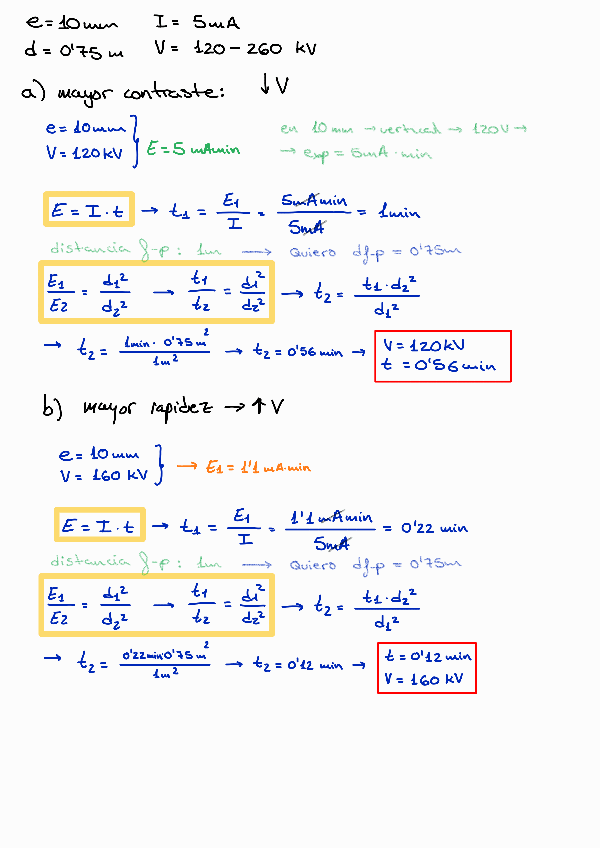 e = 10 mm I = 5 mA
d = 0'75 m V = 120 - 260 kV
a) mayor contraste: ↓V
e = 10 mm
V = 120 kV } E = 5 mAmin
en 10 mm → vertical → 120V →
→ exp = 5mA · min
E = I · t → t₁ = E₁/I = 5mAmin/5mA = 1min
distancia f-p: 1m → Quiero df-p = 0'75m
E₁/E2 = d₁²/d₂² → t₁/t₂ = d1²/d2² → t₂ = t₁·d₂²/d₁²
→ t₂ = 1min · 0'75m²/1m² → t₂ = 0'56 min → V = 120 kV
t = 0'56 min
b) mayor rapidez → ↑ V
e = 10 mm
V = 160 kV } → E₁ = 1'1 mA·min
E = I · t → t₁ = E₁/I = 1'1 mAmin/5mA = 0'22 min
distancia f-p: 1m → Quiero df-p = 0'75m
E₁/E2 = d₁²/d₂² → t₁/t₂ = d1²/d2² → t₂ = t₁·d₂²/d₁²
→ t₂ = 0'22min·0'75m²/1m² → t₂ = 0'12 min → t = 0'12 min
V = 160 kV